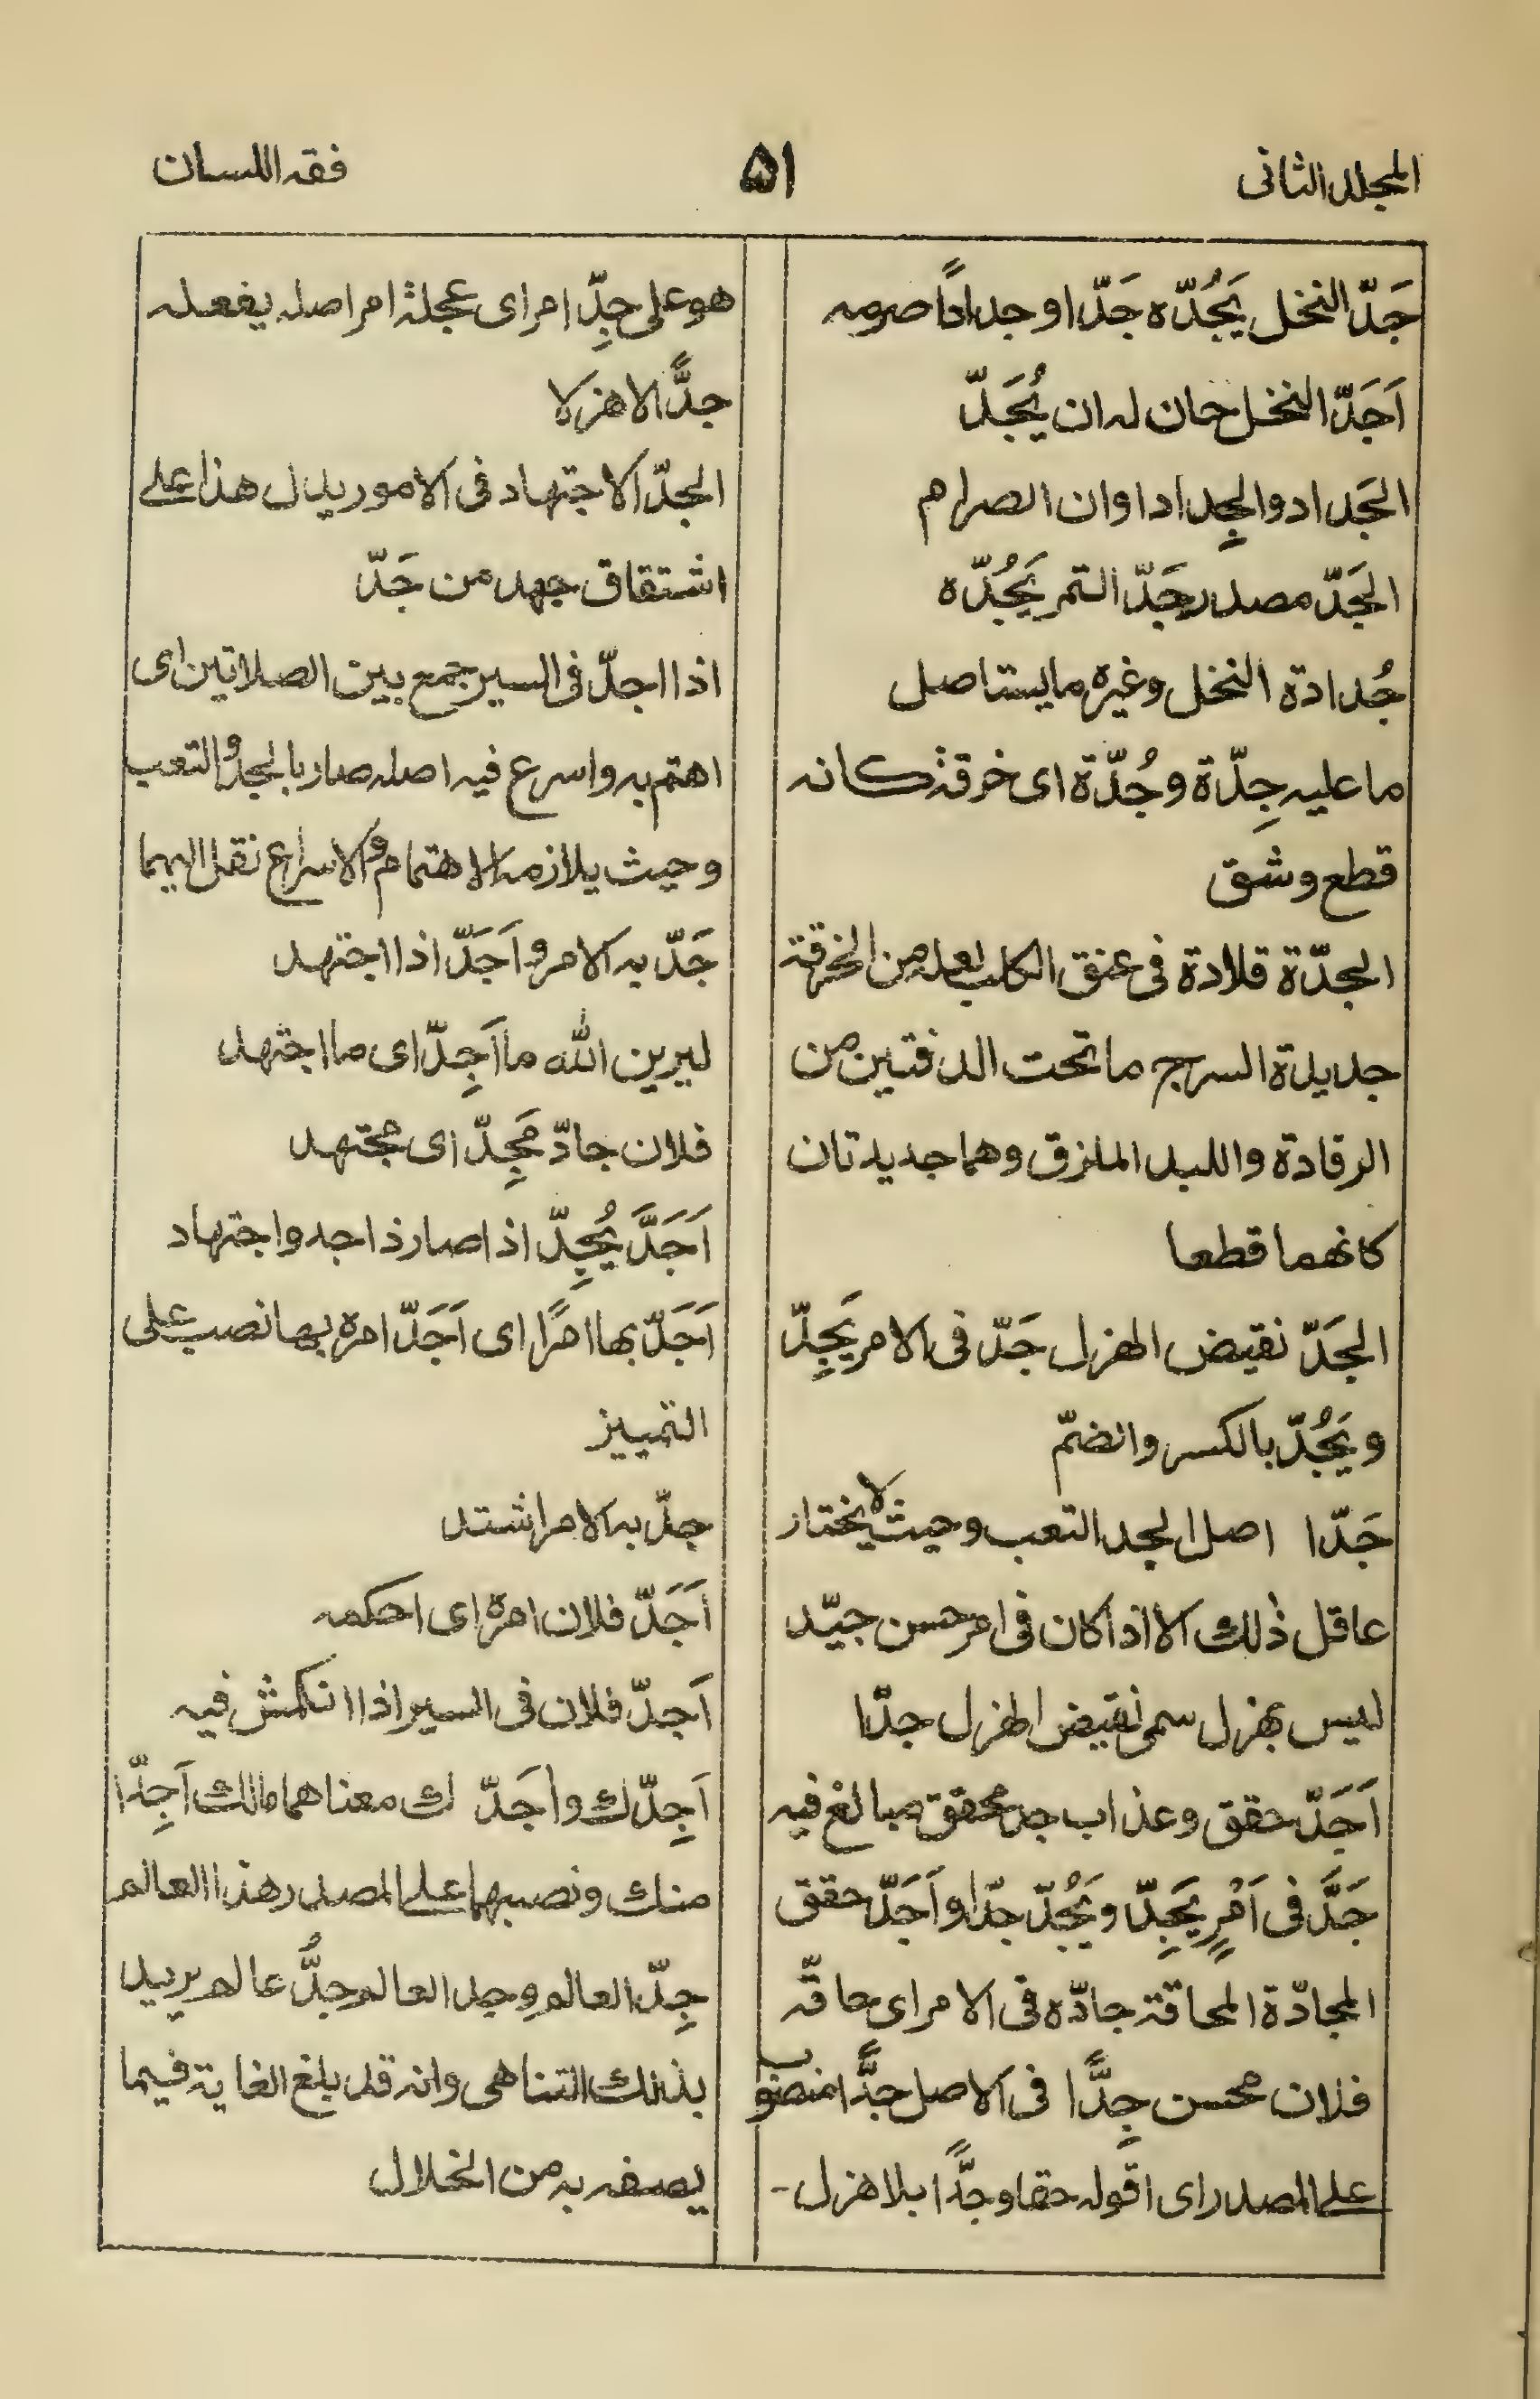 المجلد الثانى
٥١
فقه اللسان
جَدّ النخل يَجُدّه جَدّا وجدادًا صرمه
اَجَدّ النخل حان له ان يُجَدّ
الجَداد والجِداد اوان الصرام
الجَدّ مصدر جَدّ التمر يَجُدّه
جُدادة النخل وغيره ما يستاصل
ما عليه جِدّة وجُدّة اى خرقة كانه
قطع وشق
الجدّة قلادة فى عنق الكلب لعله من الخرقة
جديدة السرج ما تحت الدفتين من
الرقادة واللبد الملزق وهما جديدتان
كانهما قطعا
الجَدّ نقيض الهزل جَدّ فى الامر يَجِدّ
ويَجُدّ بالكسر وانضمّ
جَدّا اصل الجد التعب وحيث لا يختار
عاقل ذٰلك الا اذا كان فى امر حسن جيّد
ليس بهزل سمى نقيض الهزل جدّا
اَجَدّ حقق وعذاب جد محقق مبالغ فيه
جَدَّ فى اَمْرٍ يَجِدّ ويَجُدّ جدّا واَجَدّ حقق
المجادّة المحاقة جادّه فى الامر اى حاقّه
فلان محسن جِدًّا فى الاصل جدًّا منصوب
على المصدر اى اقوله حقا وجدًّا بلا هزل -
هو على جِدِّ امر اى عجلة امر اصله يفعله
جدًّا لا هزلا
الجدّ الاجتهاد فى الامور يدل هذا على
اشتقاق جهد من جَدّ
اذا اجدّ فى السير جمع بين الصلاتين اى
اهتم به واسرع فيه اصله صار بالجد والتعب
وحيث يلازمه الاهتمام والاسراع نقل اليهما
جَدّ به الامر واَجَدّ اذا اجتهد
ليرين الله ما اَجِدّ اى ما اجتهد
فلان جادّ مَجِدّ اى مجتهد
اَجَدَّ يُجِدّ اذا صار ذا جد واجتهاد
اَجَدّ بها امرًا اى اَجَدّ امره بها نصب على
التمييز
جدّ به الامر اشتد
اَجَدّ فلان امره اى احكمه
اَجدّ فلان فى السير اذا انكمش فيه
اَجِدّك واَجَدّ ك معناهما مالك اَجِدّا
منك ونصبهما على المصدر هذا العالم
جِدّ العالم وجد العالم جدُّ عالم يريد
بذلك التناهى وانه قد بلغ الغاية فيما
يصفه به من الخلال